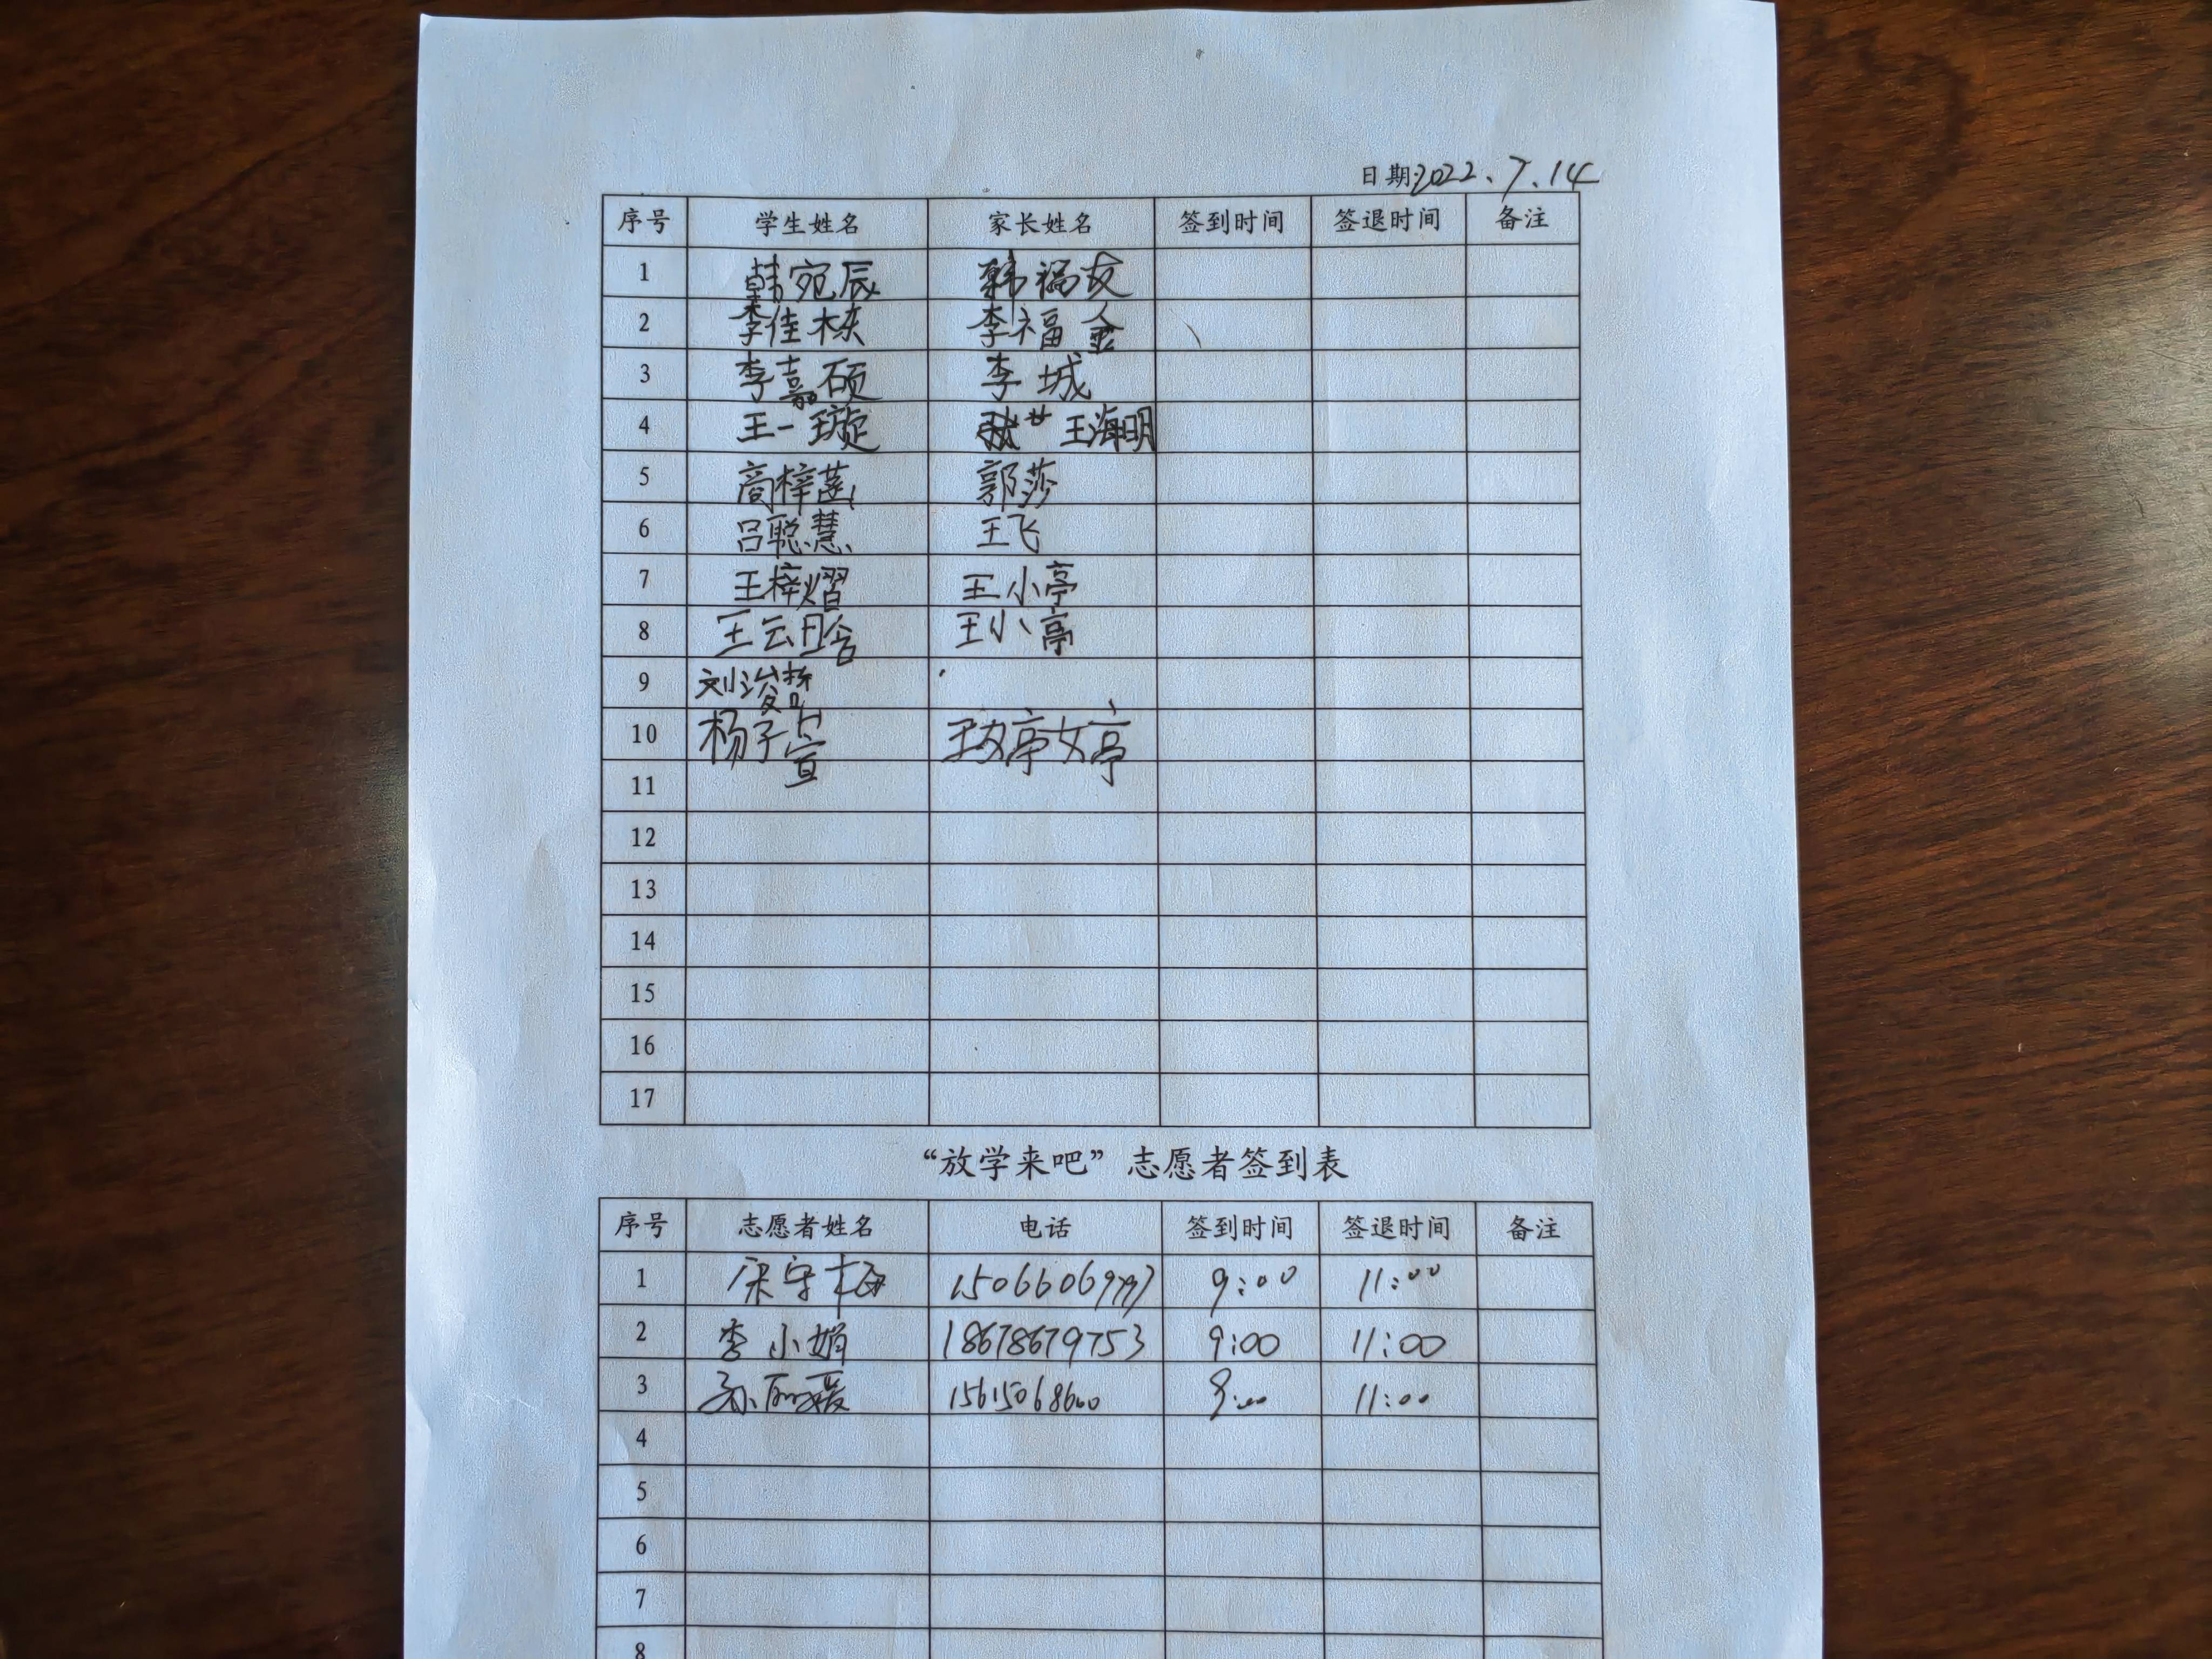 日期:2022.7.14
序号 学生姓名 家长姓名 签到时间 签退时间 备注
1 韩宛辰 韩福友
2 李佳栋 李福金
3 李嘉硕 李城
4 王一璇 王海明
5 商梓菡 郭莎
6 吕聪慧 王飞
7 王梓熠 王小亭
8 王云晗 王小亭
9 刘浚哲
10 杨子萱 王婷婷
11
12
13
14
15
16
17
“放学来吧”志愿者签到表
序号 志愿者姓名 电话 签到时间 签退时间 备注
1 宋守梅 9:00 11:00
2 李小娟 18678679753 9:00 11:00
3 孙丽媛 15615068600 9:00 11:00
4
5
6
7
8